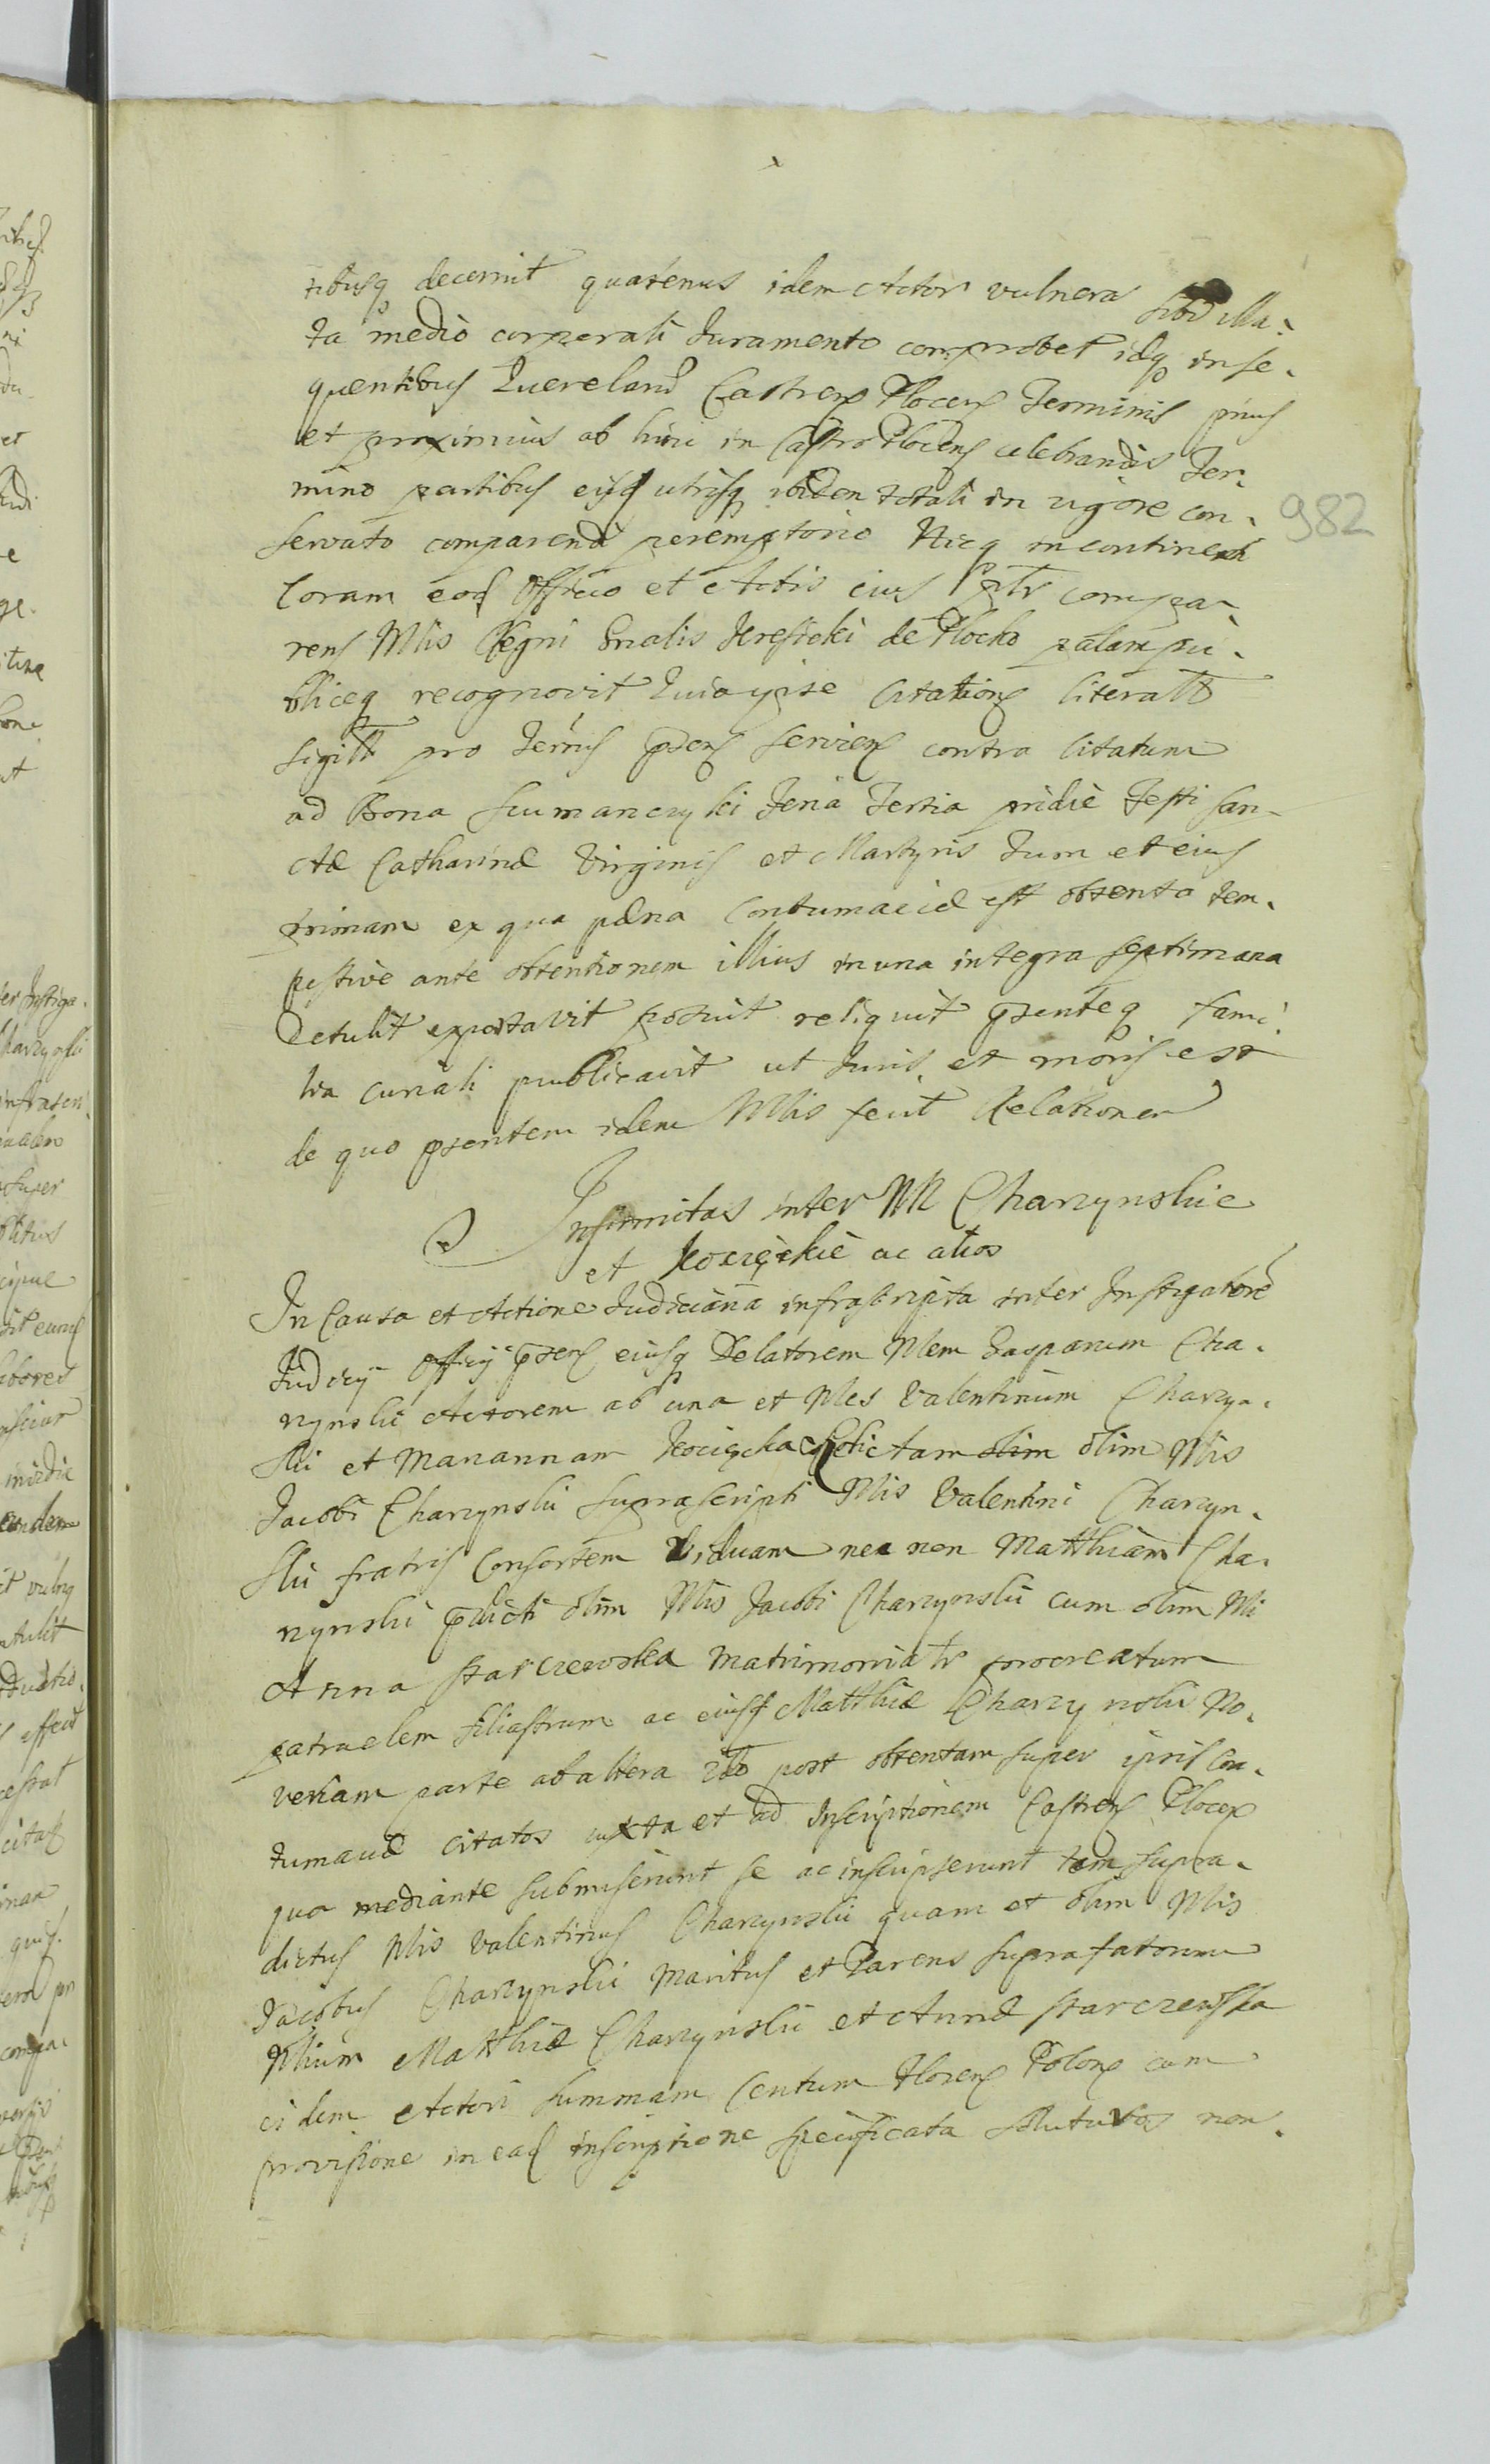 tibusq decernit quatenus idem Actor vulnera sibi illa-
ta medio corporali Iuramento comprobet idq in se-
quentibus Querelarū Castren Plocen Terminis prius
et proximius ab hinc in Castro Plocen celebrandis Ter-
mino partibus eisd utrisq ibidem totali in rigore con-
servato comparendi peremptorie Hicq in continenti
Coram eod Officio et Actis eius psltr compa-
rens Mlis Regni Gnalis de Plocko palam pu-
bliceq recognovit Quia ipse Citationē literalē
sigillē pro Terīs pnsen servien contra Citatum
ad Bona Szumanczyki Feria Tertia pridie Festi San-
ctæ Catharinæ Virginis et Martyris Tum et eius
trinam ex qua pæna Contumaciæ est obtenta tem-
pestive ante obtentionem illius in una integra septimana
Detulit exportavit posuit reliquit psenteq fami-
lia curiali publicavit ut Iuris et moris est
de quo psentem idem Mlis fecit Relationem
Infirmitas inter NN Charzynskie
et Kocięckie ac alios
In Causa et Actione Iudiciaria infrascripta inter Instigatorē
Iudicij Officij psen eiusq Delatorem Nlem Gasparum Cha-
rzynski Actorem ab una et Nles Valentinum Charzyn-
ski et Mariannam Kocięcka relictam olim olim Nlis
Jacobi Charzynski suprascripti Nlis Valentini Charzyn-
ski fratris Consortem Viduam nec non Matthiam Cha-
rzynski pdicti olim Nlis Jacobi Charzynski cum olim Nli
Anna Starczewska Matrimonialr procreatum
patruelem filiastrum ac eiusd Matthiæ Charzynski No-
vercam parte ab altera post obtentam super ipsis Con-
tumaciā citatos iuxta et ad Inscriptionem Castren Plocen
qua mediante submiserunt se ac inscripserunt tam supra-
dictus Nlis Valentinus Charzynski quam et olim Nlis
Jacobus Charzynski Maritus et Parens suprafatorum
Nlium Matthiæ Charzynski et Annæ Starczewska
eidem Actori summam Centum Floren Polon cum
provisione in ead inscriptione specificata soluturos non
982